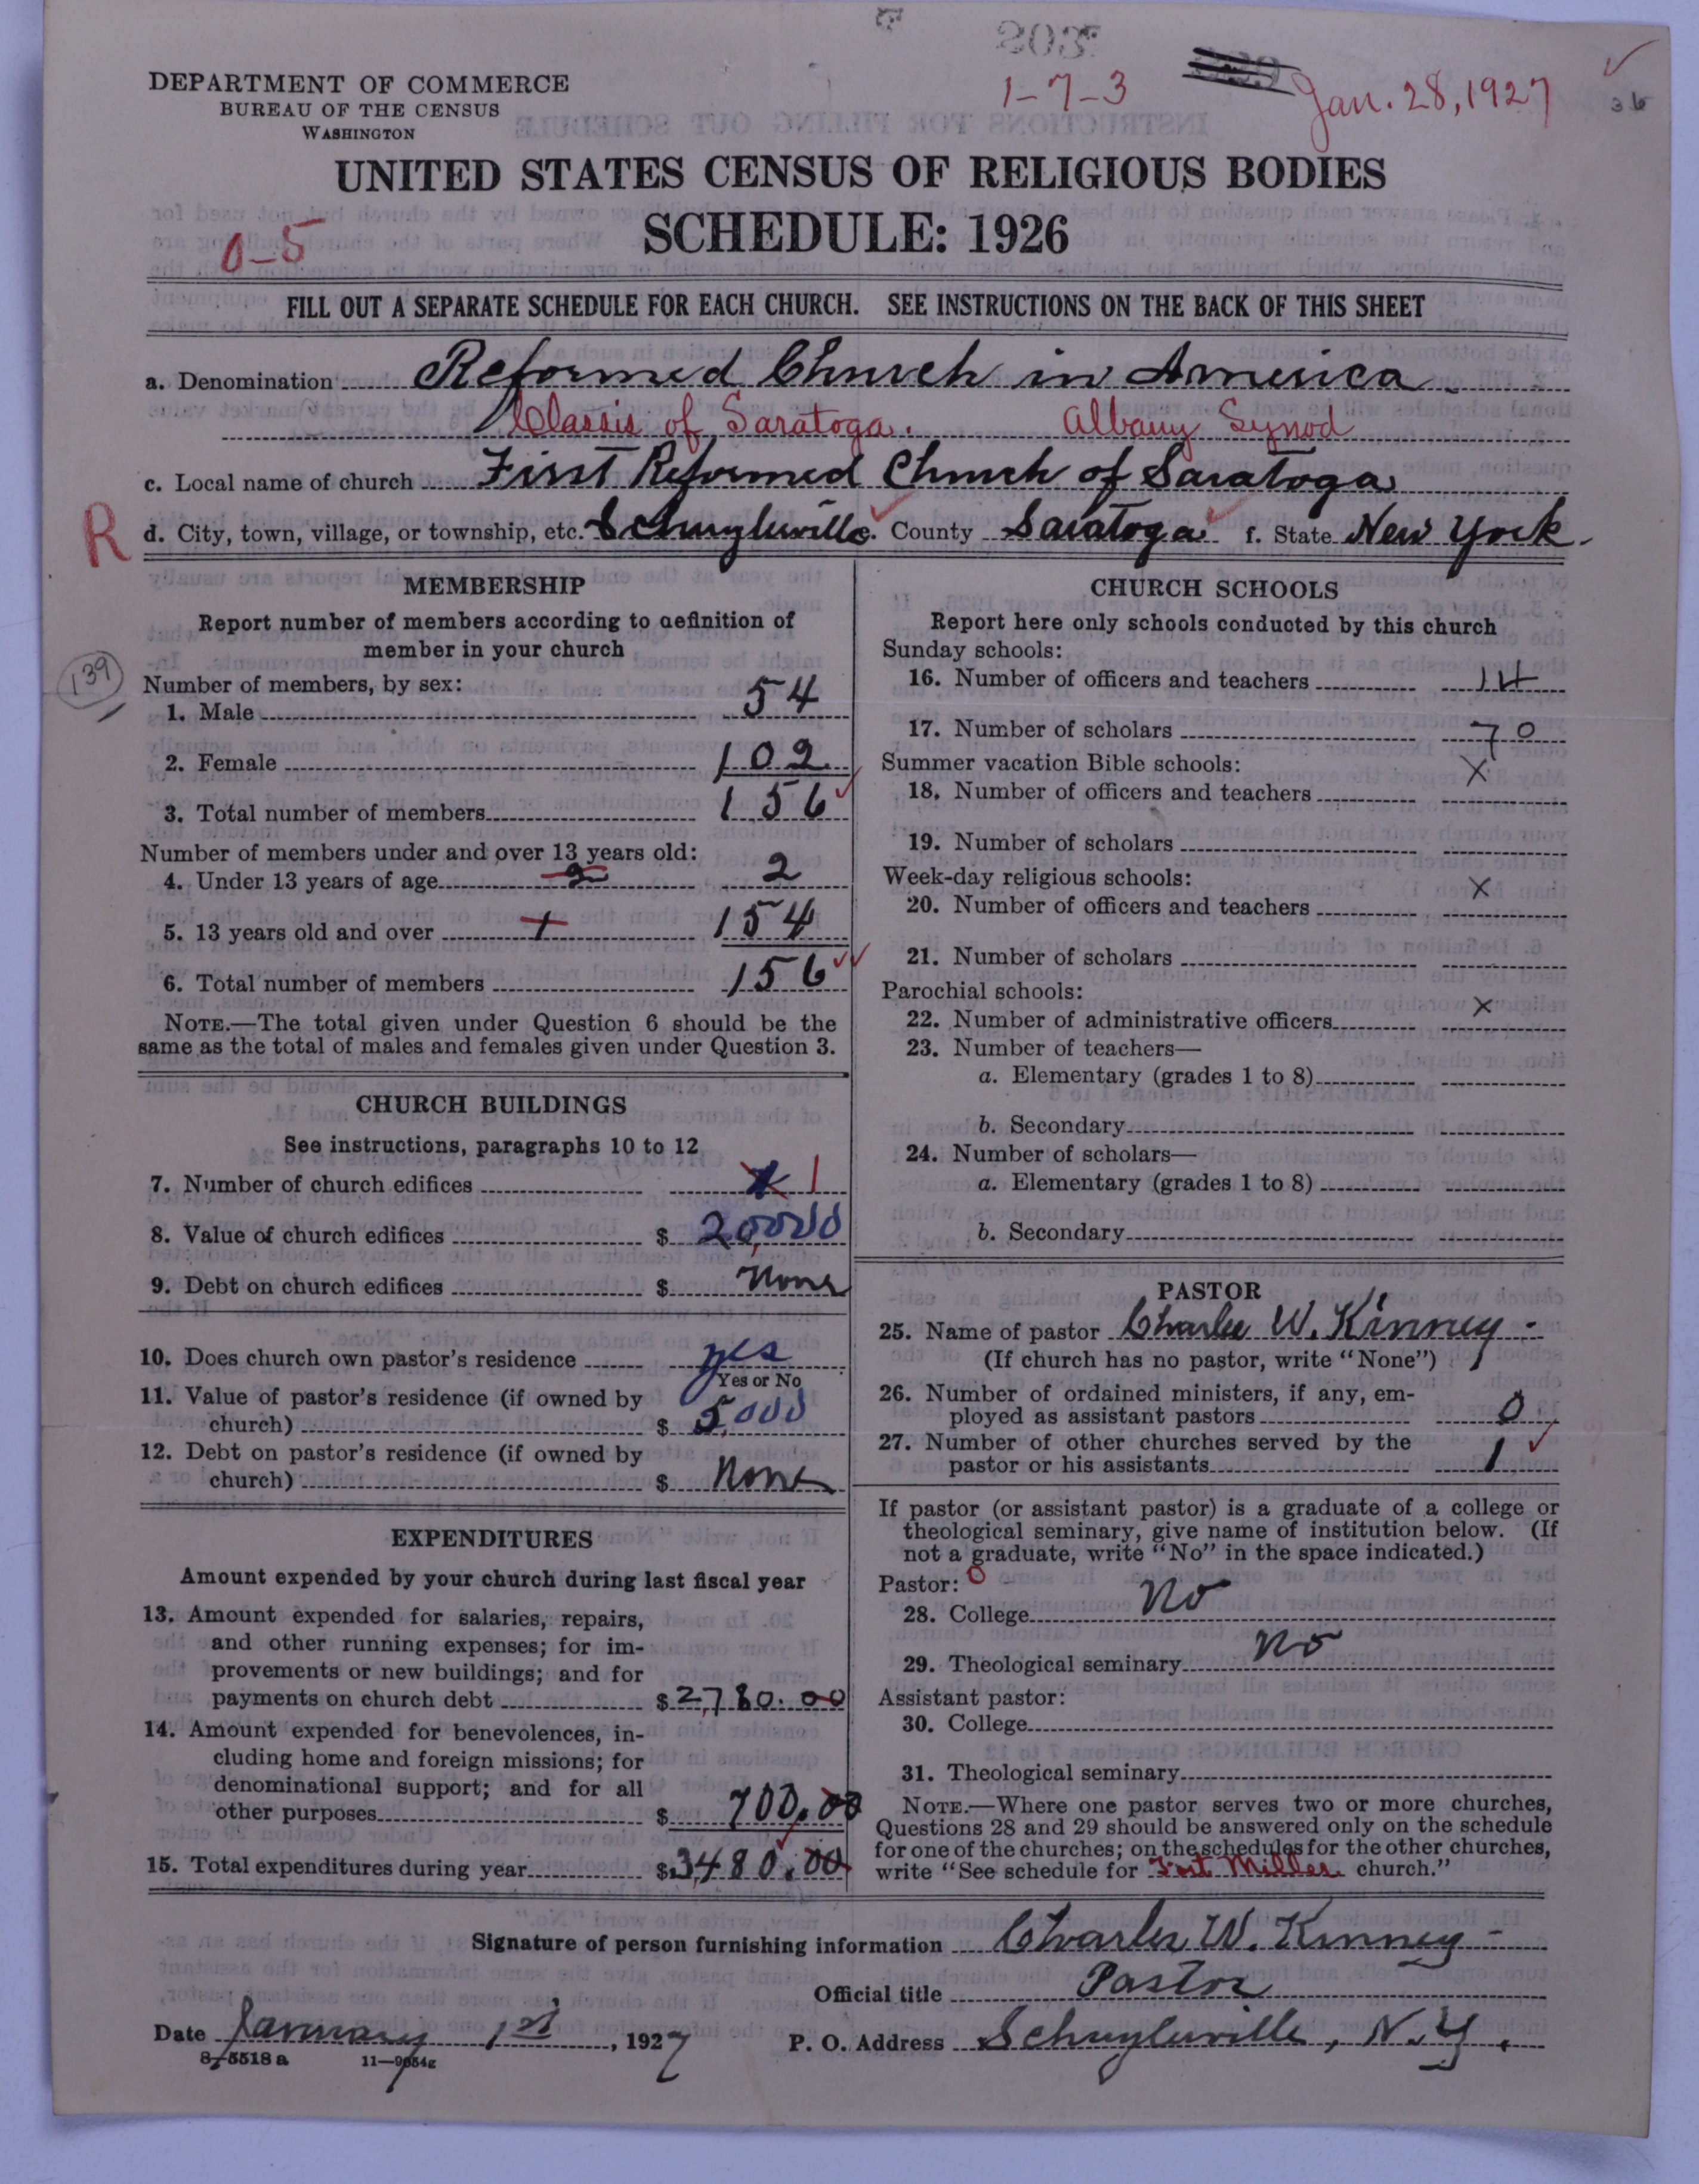 203
1-7-3
Jan. 28, 1927
36
DEPARTMENT OF COMMERCE
BUREAU OF THE CENSUS
WASHINGTON
UNITED STATES CENSUS OF RELIGIOUS BODIES
SCHEDULE: 1926
0-5
FILL OUT A SEPARATE SCHEDULE FOR EACH CHURCH. SEE INSTRUCTIONS ON THE BACK OF THIS SHEET
a. Denomination Reformed Church in America
Classis of Saratoga. Albany Synod
c. Local name of church First Reformed Church of Saratoga
R
d. City, town, village, or township, etc. Schuylerville. County Saratoga f. State New York.
MEMBERSHIP
Report number of members according to definition of
member in your church
139
Number of members, by sex:
1. Male 54
2. Female 102
3. Total number of members 156
Number of members under and over 13 years old:
4. Under 13 years of age 2 2
5. 13 years old and over 154
6. Total number of members 156
NOTE.—The total given under Question 6 should be the
same as the total of males and females given under Question 3.
CHURCH BUILDINGS
See instructions, paragraphs 10 to 12
7. Number of church edifices 1
8. Value of church edifices $ 20,000
9. Debt on church edifices $ None
10. Does church own pastor's residence yes
Yes or No
11. Value of pastor's residence (if owned by
church) $ 5,000
12. Debt on pastor's residence (if owned by
church) $ None
EXPENDITURES
Amount expended by your church during last fiscal year
13. Amount expended for salaries, repairs,
and other running expenses; for im-
provements or new buildings; and for
payments on church debt $ 2,780.00
14. Amount expended for benevolences, in-
cluding home and foreign missions; for
denominational support; and for all
other purposes $ 700.00
15. Total expenditures during year $ 3,480.00
CHURCH SCHOOLS
Report here only schools conducted by this church
Sunday schools:
16. Number of officers and teachers 14
17. Number of scholars 70
Summer vacation Bible schools:
18. Number of officers and teachers X
19. Number of scholars
Week-day religious schools:
20. Number of officers and teachers X
21. Number of scholars
Parochial schools:
22. Number of administrative officers X
23. Number of teachers—
a. Elementary (grades 1 to 8)
b. Secondary
24. Number of scholars—
a. Elementary (grades 1 to 8)
b. Secondary
PASTOR
25. Name of pastor Charles W. Kinney -
(If church has no pastor, write "None")
26. Number of ordained ministers, if any, em-
ployed as assistant pastors 0
27. Number of other churches served by the
pastor or his assistants 1
If pastor (or assistant pastor) is a graduate of a college or
theological seminary, give name of institution below. (If
not a graduate, write "No" in the space indicated.)
Pastor: 0 -
28. College No
29. Theological seminary No
Assistant pastor:
30. College
31. Theological seminary
NOTE.—Where one pastor serves two or more churches,
Questions 28 and 29 should be answered only on the schedule
for one of the churches; on the schedules for the other churches,
write "See schedule for Fort Miller church."
Signature of person furnishing information Charles W. Kinney -
Official title Pastor
Date January 1st, 1927 P. O. Address Schuylerville, N.Y.
8-5518 a 11-9054g